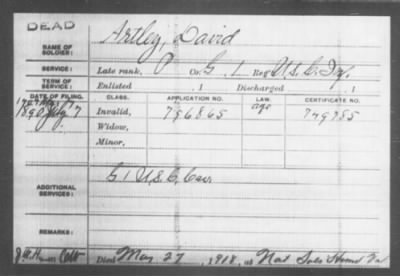 DEAD
NAME OF SOLDIER: Artley, David
SERVICE: Late rank, P Co. G, 1 Reg't U.S.C. Inf.
TERM OF SERVICE: Enlisted , 1 Discharged , 1
DATE OF FILING. CLASS. APPLICATION NO. LAW. CERTIFICATE NO.
1890 July 7 Invalid, 796865 age 749785
Widow,
Minor,
ADDITIONAL SERVICES: G 1 U.S.C. Cav
REMARKS:
Died May 27, 1918, at Nat Sols Home Va